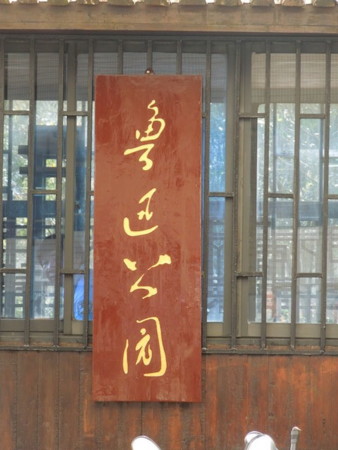 鲁迅公园